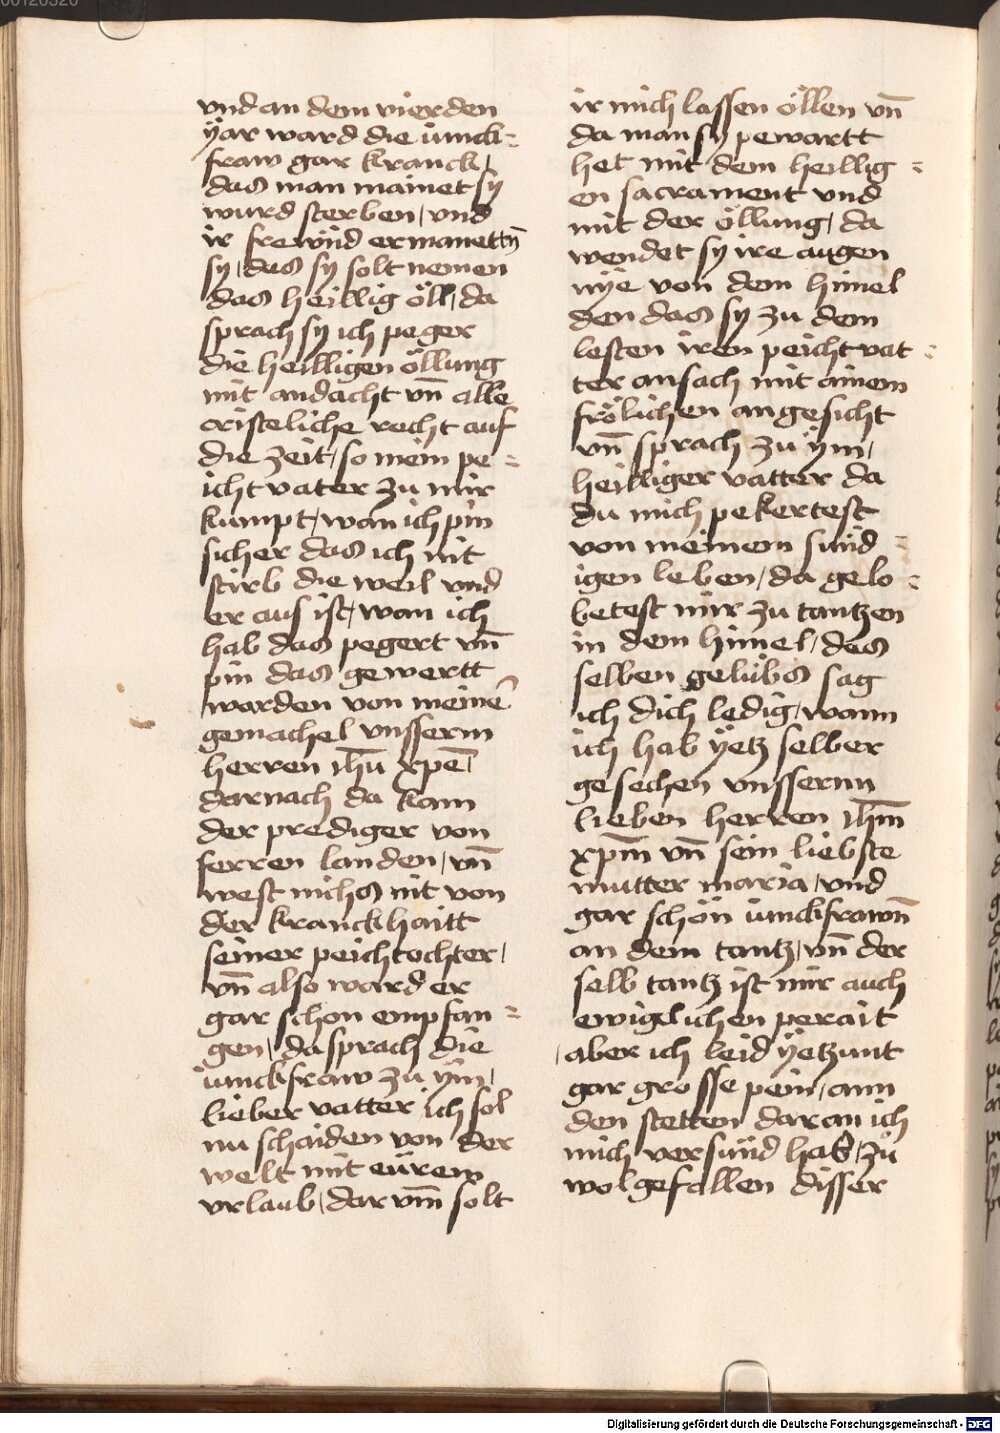 vnd an dem vierden
ÿar ward die iunck=
fraw gar kranck /
das man mainet sy
wurd sterben / vnd
ir frewnd ermanettn̄
sy / das sy solt nemen
das heillig öll / da
sprach sy ich peger
die heilligen öllung
mit andacht vn̄ alle
cristeliche recht auf
die zeit / so mein pe=
icht vater zu mir
kumpt / wan ich pin
sicher das ich nit
stirb die weil vnd
er aus ist / wan ich
hab das pegert vn̄
pin das gewertt
warden von meinē
gemachel vnsserm
herren ih̄u xpē /
darnach da kam
der prediger von
ferren landen / vn̄
west nichs nit von
der kranckhaitt
seiner peichtochter /
vn̄ also ward er
gar schon empfan=
gen / da sprach die
iunckfraw zu ÿm /
lieber vatter ich sol
nu schaiden von der
welt mit eürem
vrlaub / dar vm̄ solt
ir mich lassen öllen vn̄
da man sy pewartt
het mit dem heillig=
en sacrament vnd
mit der öllung / da
wendet sy ire augen
nÿe von dem himel
den das sy zu dem
lesten iren peicht vat=
ter ansach mit ainem
frölichen angesicht
vn̄ sprach zu ÿm /
heilliger vatter da
du mich pekertest
von meinem sünd=
igen leben / da gelo=
betest mir zu tantzen
in dem himel / das
selben gelübs sag
ich dich ledig / wann
ich hab ÿetz selber
gesechen vnssernn
lieben herren ih̄m
xpm̄ vn̄ sein liebste
mutter maria / vnd
gar schön iunckfrawn̄
an dem tantz / vn̄ der
selb tantz ist mir auch
ewigklichen perait
/ aber ich leid ÿetzunt
gar grosse pein / ann
den stetten daran ich
mich versünd hab / zu
wolgefallen disser
Digitalisierung gefördert durch die Deutsche Forschungsgemeinschaft - DFG